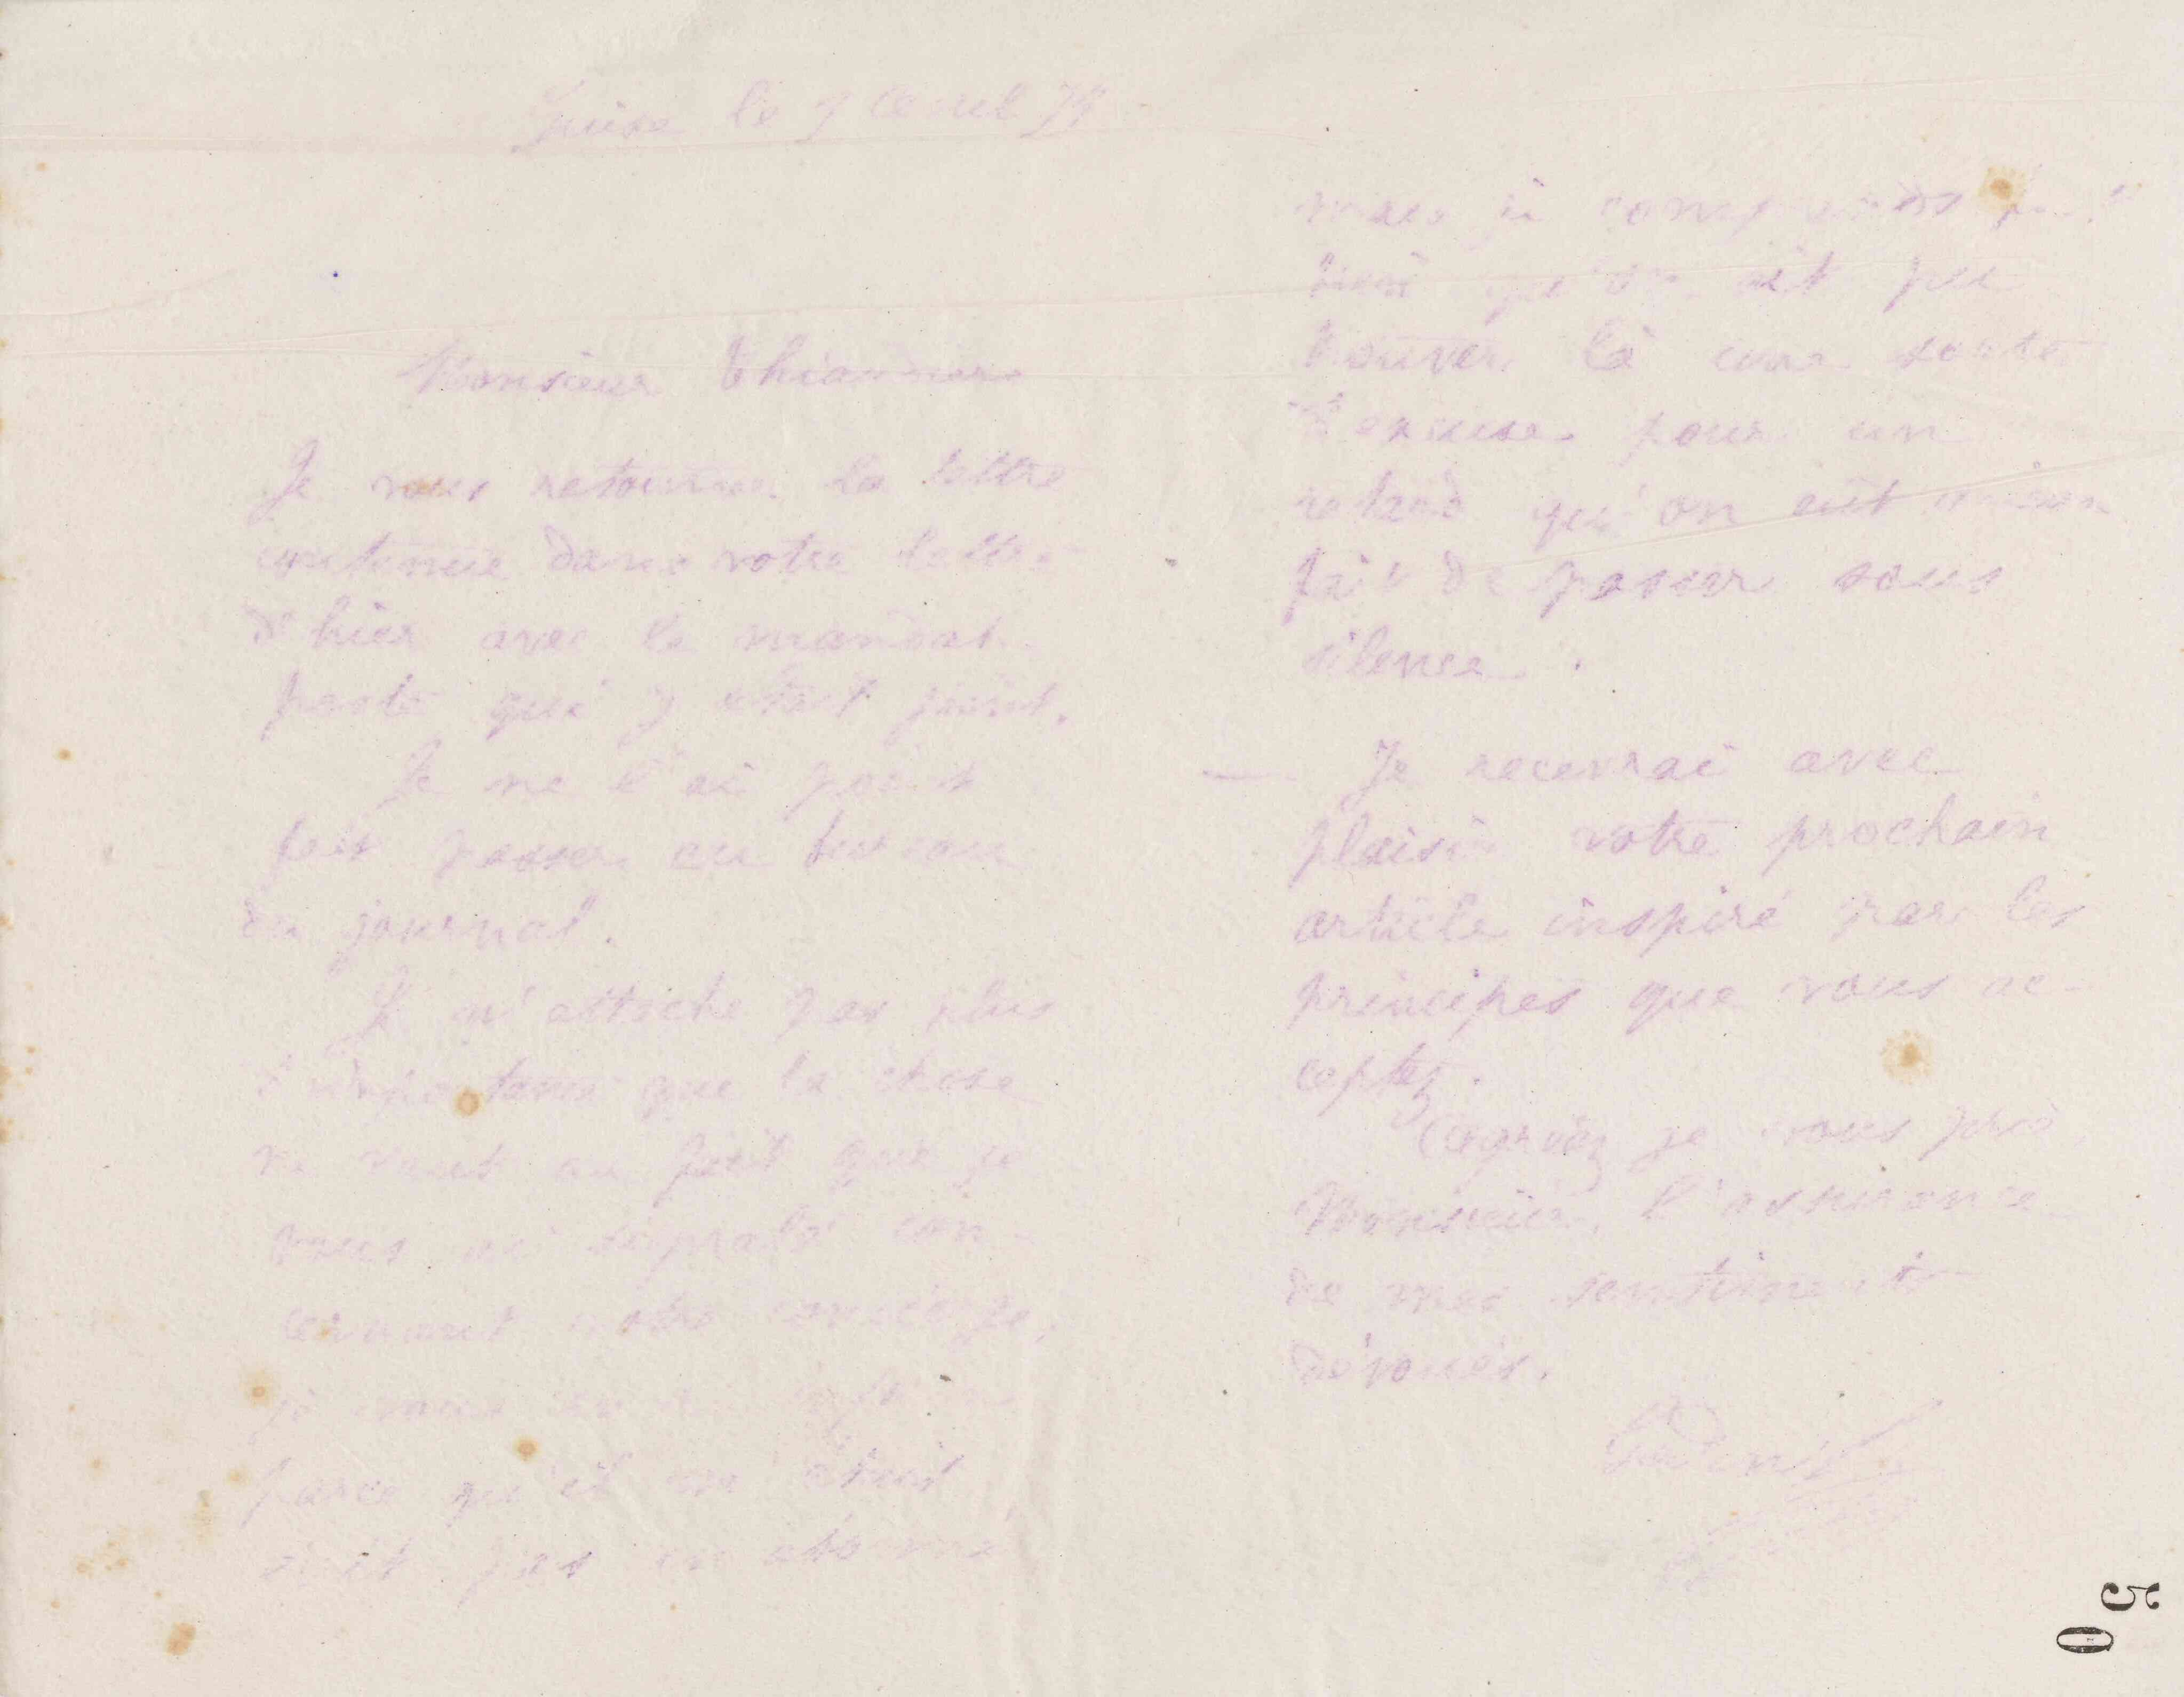 Guise le 7 avril 79
Monsieur
Je vous retourne la lettre
contenue dans votre lettre
d'hier avec le mandat
poste qui y était joint.
Je ne l'ai point
fait passer au bureau
du journal.
Je n'attache pas plus
d'importance que la chose
ne vaut au fait que je
vous ai signalé con-
cernant notre concierge,
je vous en
parce qu'il m'
pas
mais je comprends
bien qu'on ait pu
trouver là une sorte
d'excuse pour un
retard qu'on eut mieux
fait de passer sous
silence.
Je recevrai avec
plaisir votre prochain
article inspiré par les
principes que vous ac-
ceptez.
Agréez je vous prie
Monsieur, l'assurance
de mes sentiments
dévoués.
Godin
50